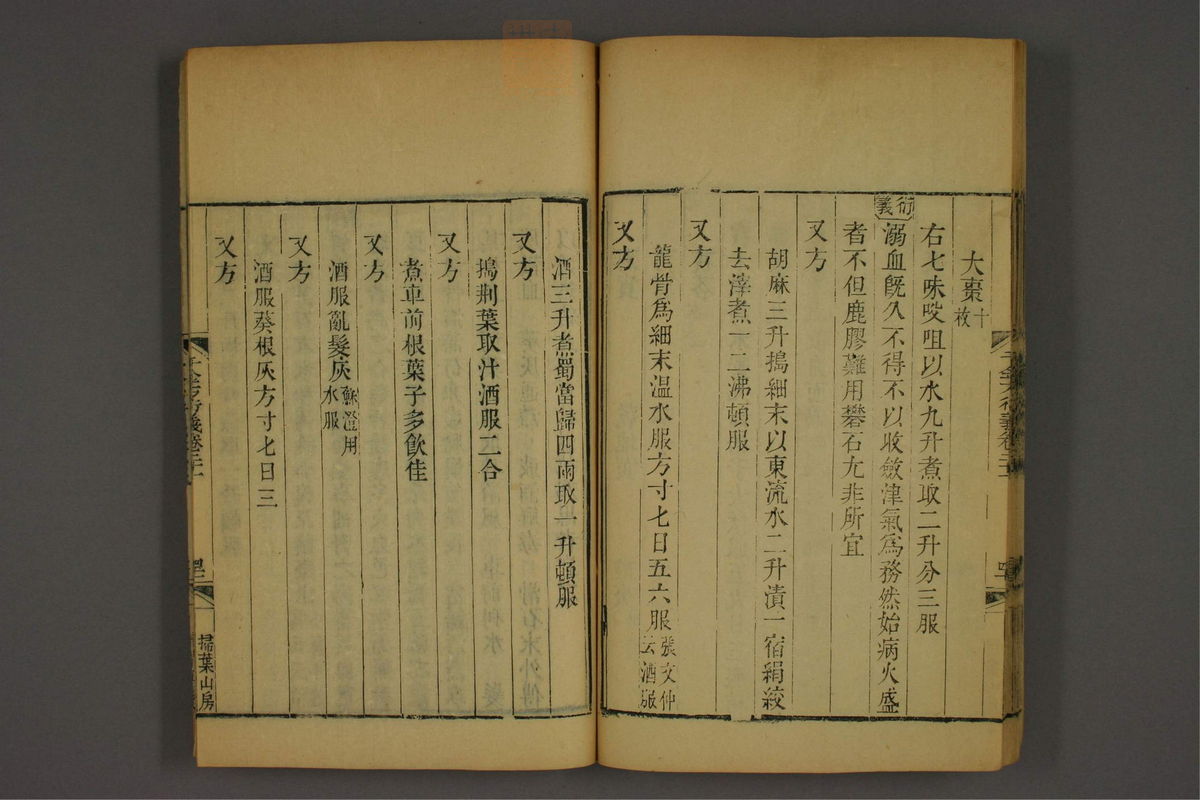 大棗十枚
右七味㕮咀以水九升煮取二升分三服
衍義
溺血旣久不得不以收斂津氣爲務然始病火盛
者不但鹿膠難用礬石尤非所宜
又方
胡麻三升搗細末以東流水二升漬一宿絹絞
去滓煮一二沸頓服
又方
龍骨爲細末溫水服方寸匕日五六服張文仲云酒服
又方
酒三升煮蜀當歸四兩取一升頓服
又方
搗荆葉取汁酒服二合
又方
煮車前根葉子多飲佳
又方
酒服亂髮灰蘇澄用水服
又方
酒服葵根灰方寸匕日三
又方
千金方衍義卷二十一
掃葉山房